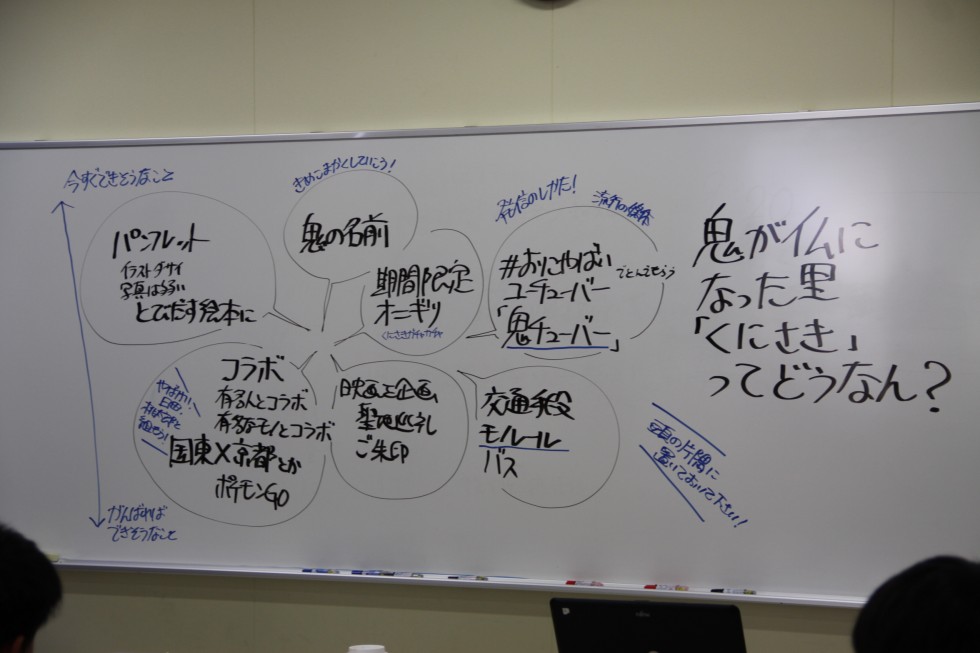 今すぐできそうなこと
パンフレット
イラストダサイ
写真は多い
とびだす絵本に
きめこまかくしていこう!
鬼の名前
期間限定
オニギリ
くにさきガチャガチャ
発信のしかた!
#おにやばい
ユーチューバー
「鬼チューバー」
コラボ
有名人とコラボ
有名なモノとコラボ
国東×京都とか
ポケモンGO
映画を企画
聖地巡礼
ご朱印
交通手段
モノレール
バス
がんばれば
できそうなこと
鬼が仏に
なった里
「くにさき」
ってどうなん?
頭の片隅に
置いておいて下さい!